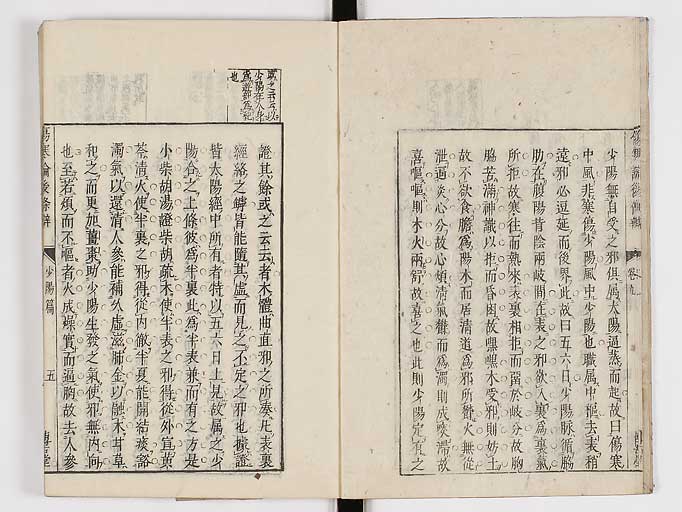 少陽無自受之邪俱屬太陽逼蒸而起故曰傷寒
中風非寒傷少陽風中少陽也職屬中樞去表稍
遠邪必逗延而後界此故曰五六日少陽脉循脇
肋在腹陽背陰兩岐間在表之邪欲入裏爲裏氣
所拒故寒往而熱來表裏相拒而畱於岐分故胸
脇苦滿神識以拒而昏困故嘿嘿木受邪則妨土
故不欲食膽爲陽木而居清道爲邪所鬱火無從
泄逼炎心分故心煩清氣鬱而爲濁則成痰滯故
喜嘔嘔則木火兩舒故喜之也此則少陽定有之
證其餘或之云云者木體曲直邪之所湊凡表裏
經絡之罅皆能隨其虛而見之不定之邪也據證
皆太陽經中所有者特以五六日上見故屬之少
陽合之上條彼爲半裏此爲半表兼而有之方是
小柴胡湯證柴胡疏木使半表之邪得從外宣黄
芩清火使半裏之邪得從内徹半夏能開結痰豁
濁氣以還清人參能補久虛滋肺金以融木甘草
和之而更加薑棗助少陽生發之氣使邪無内向
也至若煩而不嘔者火成燥實而逼胸故去人參
或之云云以
少陽在人身
也
傷寒論後條辨
少陽篇
五
卷九